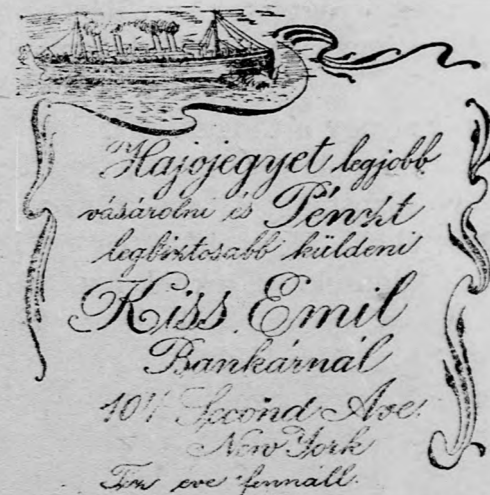 Hajojegyet legjobb
vásárolni és Pénzt
legbiztosabb küldeni
Kiss Emil
Bankárnál
Second Ave.
New York
Tiz eve fennáll.